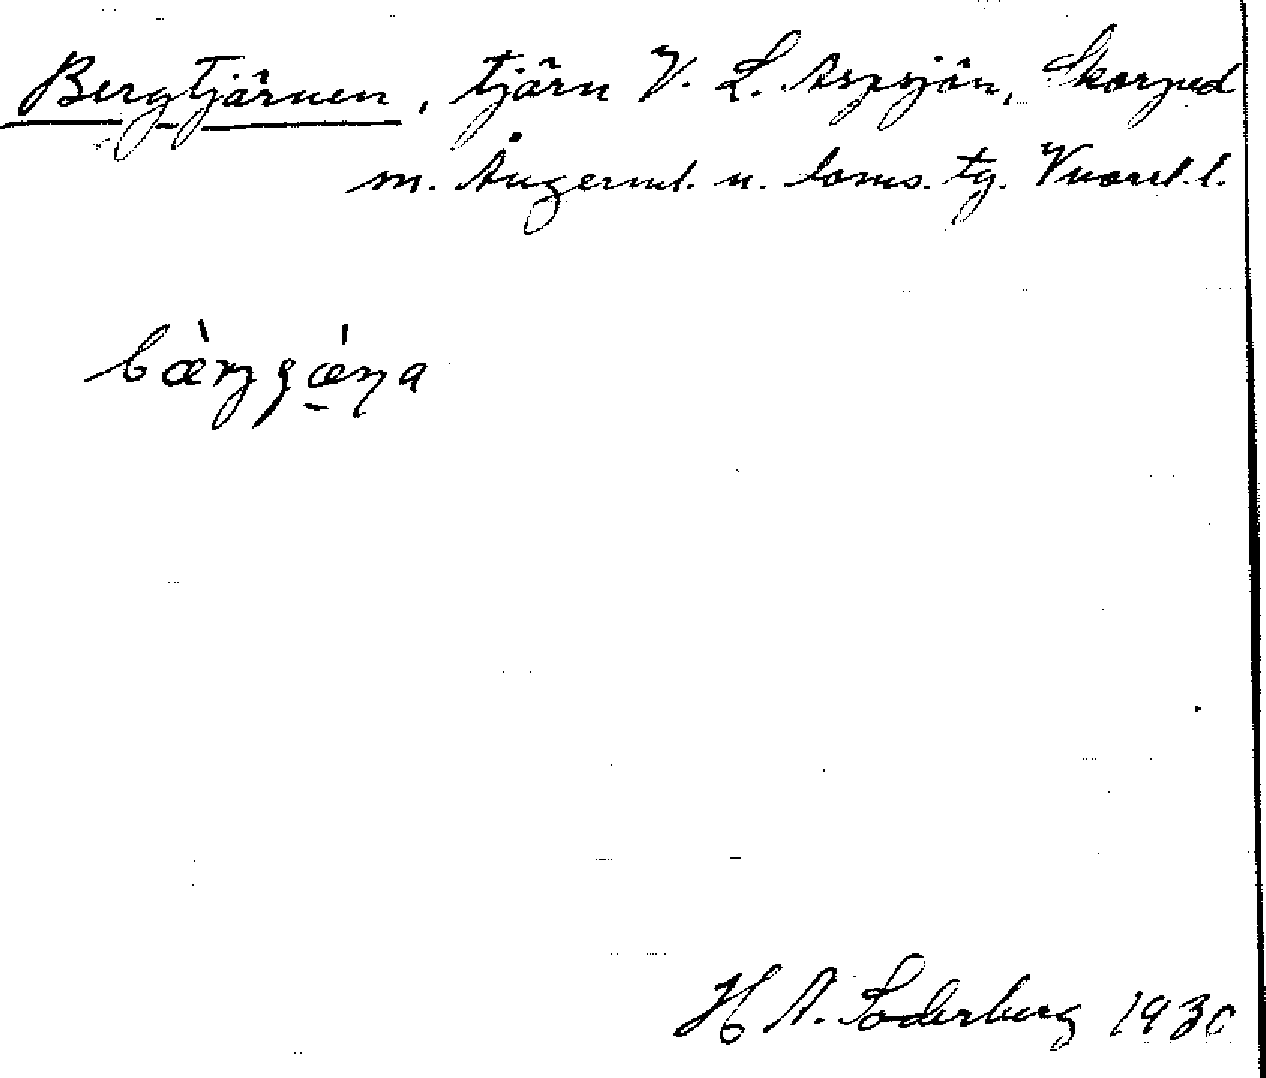 Bergtjärnen, tjärn V. L. Aspsjön, Skorped
m. Ångerml. n. doms. tg. Vnorrl. l.
H A. Söderberg 1930